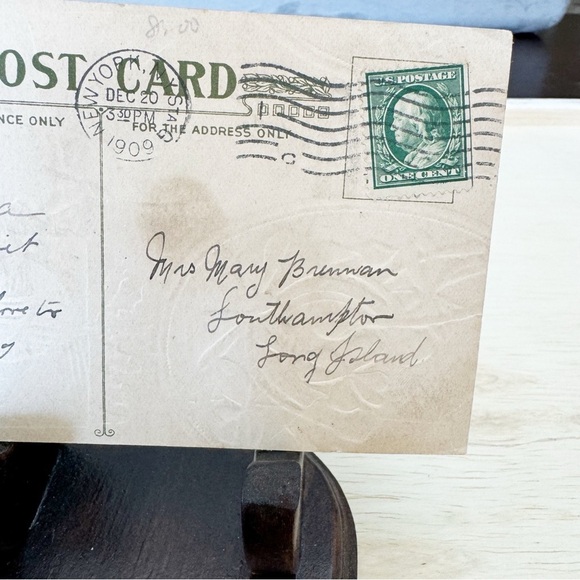 8.00
OST CARD
NEW YORK, N.Y. STA
DEC 20
3 30 PM
1909
NCE ONLY
FOR THE ADDRESS ONLY
U.S. POSTAGE
ONE CENT
a
Mrs Mary Brennan
Southampton
Long Island